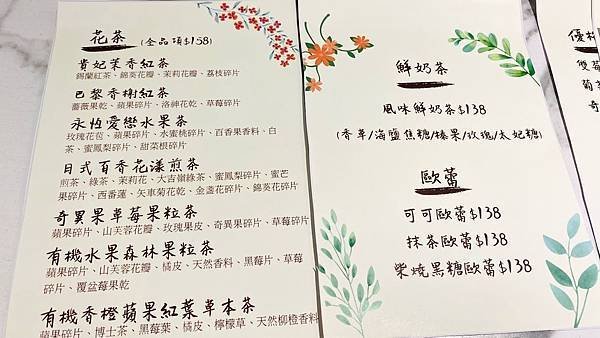 花茶 (全品項$158)
貴妃茉香紅茶
錫蘭紅茶、錦葵花瓣、茉莉花瓣、荔枝碎片
巴黎香榭紅茶
薔薇果乾、蘋果碎片、洛神花乾、草莓碎片
永恆愛戀水果茶
玫瑰花苞、蘋果碎片、水蜜桃碎片、百香果香料、白
茶、蜜鳳梨碎片、甜菜根碎片
日式百香花漾煎茶
煎茶、綠茶、茉莉花、大吉嶺綠茶、蜜鳳梨碎片、蜜芒
果碎片、西番蓮、矢車菊花乾、金盞花碎片、錦葵花碎片
奇異果草莓果粒茶
蘋果碎片、山芙蓉花瓣、玫瑰果皮、奇異果碎片、草莓碎片
有機水果森林果粒茶
蘋果碎片、山芙蓉花瓣、橘皮、天然香料、黑莓片、草莓
碎片、覆盆莓果乾
有機香橙蘋果紅葉草本茶
蘋果碎片、博士茶、黑莓葉、橘皮、檸檬草、天然柳橙香料
鮮奶茶
風味鮮奶茶$138
(香草/海鹽焦糖/榛果/玫瑰/太妃糖)
歐蕾
可可歐蕾$138
抹茶歐蕾$138
柴燒黑糖歐蕾$138
優格